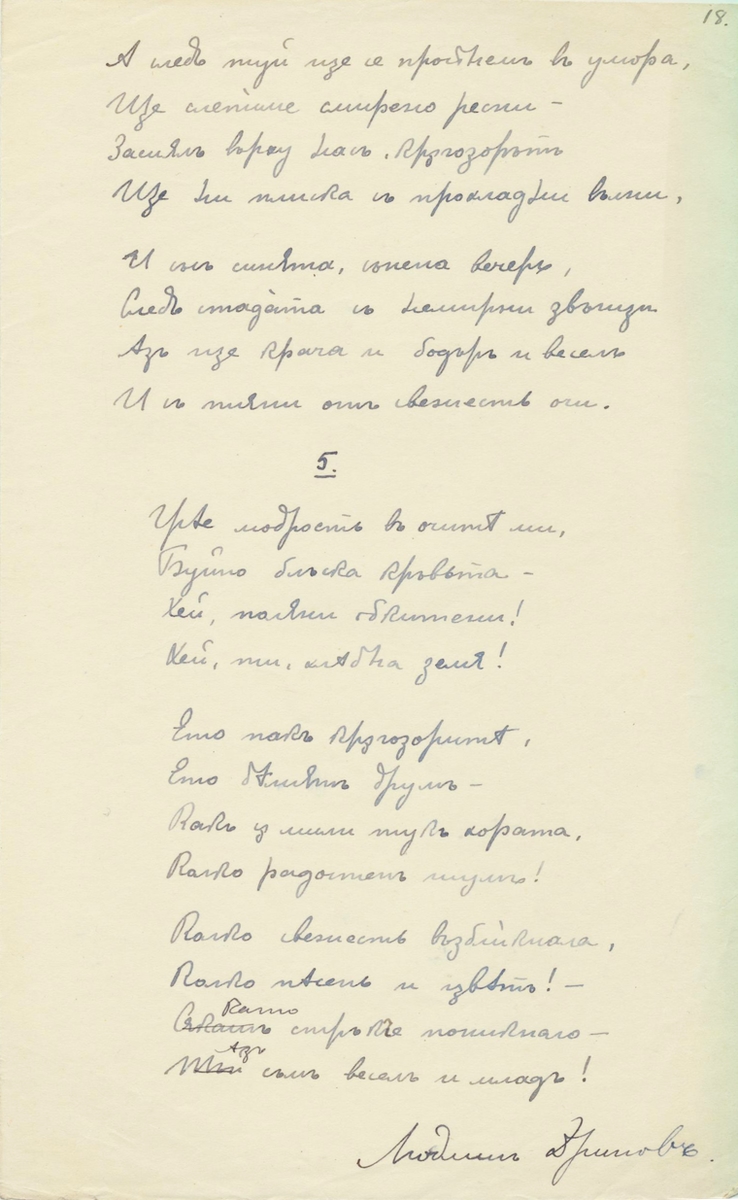 18.
А следъ туй ще се простнемъ въ умора,
Ще слепиме смирено ресни —
Засмялъ върху насъ, кръгозорътъ
Ще ни плиска съ прохладни вълни,
И въ синята, снена вечерь,
Следъ стадата съ немирни звънци
Азъ ще крача и бодъръ и веселъ
И съ пияни отъ свежесть очи.
5.
Грѣе мѫдрость въ очитѣ ми,
Буйно блъска кръвьта —
Хей, поляни обкитени!
Хей, ти, хлѣбна земя!
Ето пакъ кръгозоритѣ,
Ето бѣлиятъ друмъ —
Какъ ѫ мили тукъ хората,
Какво радостенъ шумъ!
Какво свежесть възбликнала,
Какво пѣсень и цвѣтъ! —
Като
Сѣкашъ стрѫкче поникнало —
Азъ
съмъ веселъ и младъ!
Людмилъ